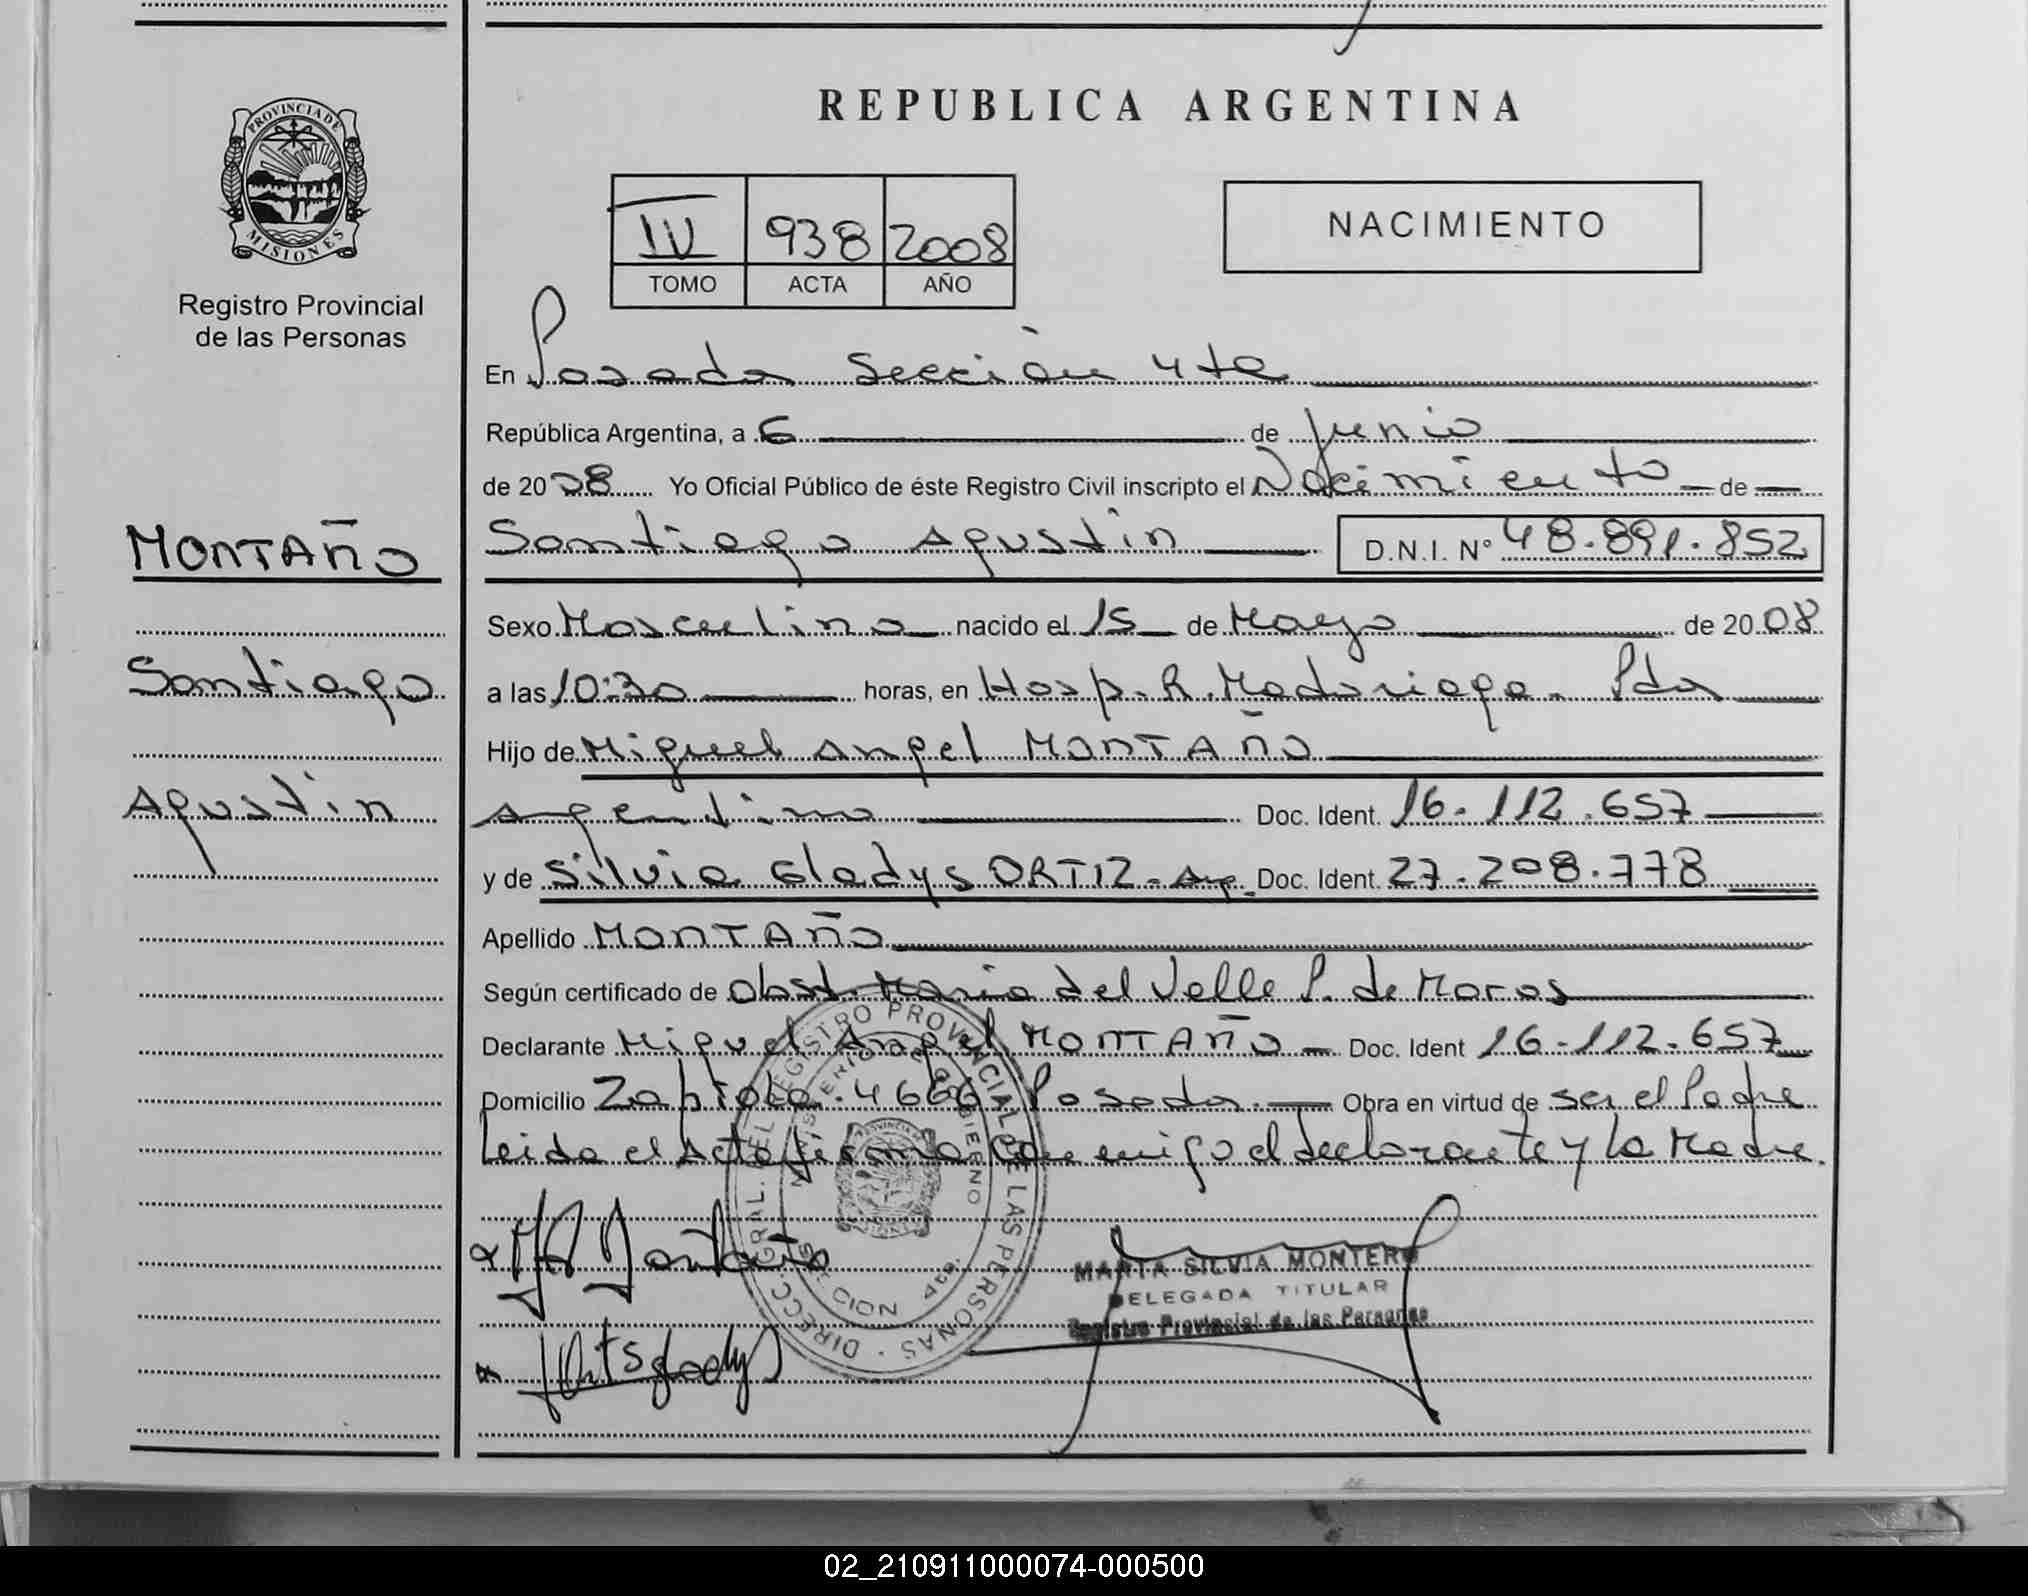 REPUBLICA ARGENTINA
PROVINCIA DE
MISIONES
Registro Provincial
de las Personas
IV 938 2008
TOMO ACTA AÑO
NACIMIENTO
En Posadas Sección 4ta
República Argentina, a 6 de Junio
de 2008 Yo Oficial Público de éste Registro Civil inscripto el Nacimiento de
MONTAÑO
Santiago
Agustin
Santiago Agustin D.N.I. N° 48.891.852
Sexo Masculino nacido el 15 de Mayo de 2008
a las 10:30 horas, en Hosp. R. Madariaga. Pdas
Hijo de Miguel Angel MONTAÑO
Argentino Doc. Ident. 16.112.657
y de Silvia Gladys ORTIZ - Arg. Doc. Ident. 27.208.778
Apellido MONTAÑO
Según certificado de Obst. Maria del Valle P. de Moros
Declarante Miguel Angel MONTAÑO - Doc. Ident 16.112.657
Domicilio Zapiola. 4666 Posadas. Obra en virtud de ser el Padre
Leida el Acta firma conmigo el declarante y la Madre.
DIRECC. GRAL. DEL REGISTRO PROVINCIAL DE LAS PERSONAS
MINISTERIO DE GOBIERNO
MARTA SILVIA MONTERO
DELEGADA TITULAR
Registro Provincial de las Personas
02_210911000074-000500